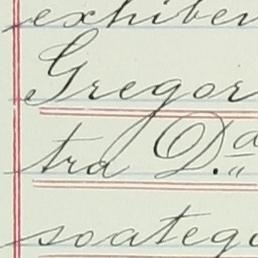 exhiben
Gregor
tra D.a
soateg